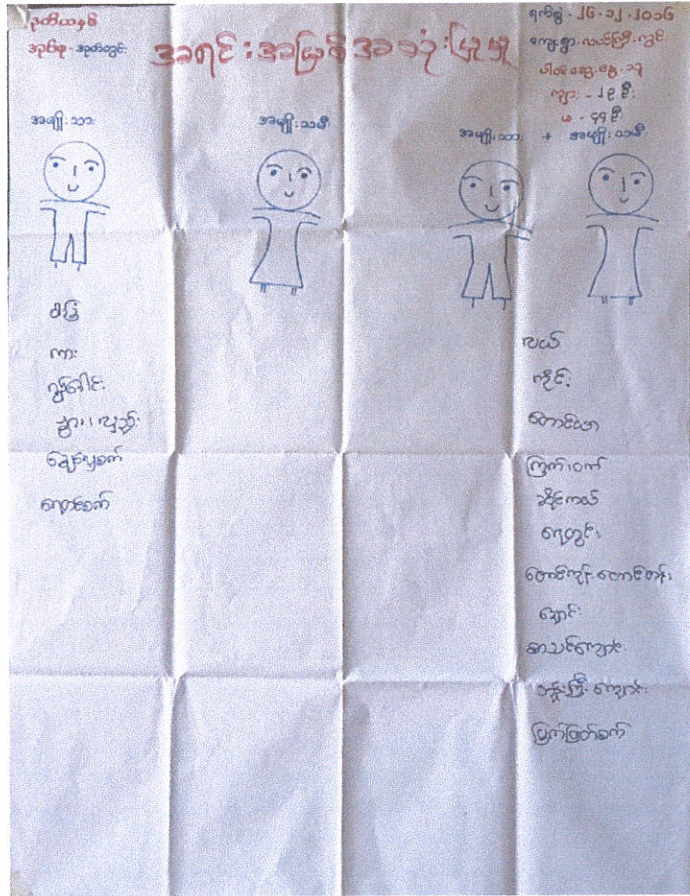 ဒုတိယနှစ်
အုပ်စု - အုတ်တွင်း
အရင်းအမြစ်အသုံးပြုမှု
ရက်စွဲ - ၂၆.၁၂.၂၀၁၆
ကျေးရွာ - လယ်ကြီးကွင်း
ပါဝင်ဆွေးနွေးသူ
ကျား - ၂၉ ဦး
မ - ၄၄ ဦး
အမျိုးသား
အမျိုးသမီး
အမျိုးသား + အမျိုးသမီး
ဝါခြံ
ကား
ကျွဲ၊ လှည်း
ရေစုပ်စက်
လယ်
ကိုင်း
တောင်ယာ
ကြက်၊ဝက်
ဆိုင်ကယ်
ရေတွင်း
တောင်ကုန်းတောင်တန်း
ချောင်း
စာသင်ကျောင်း
ဘုန်းကြီးကျောင်း
မြက်ဖြတ်စက်